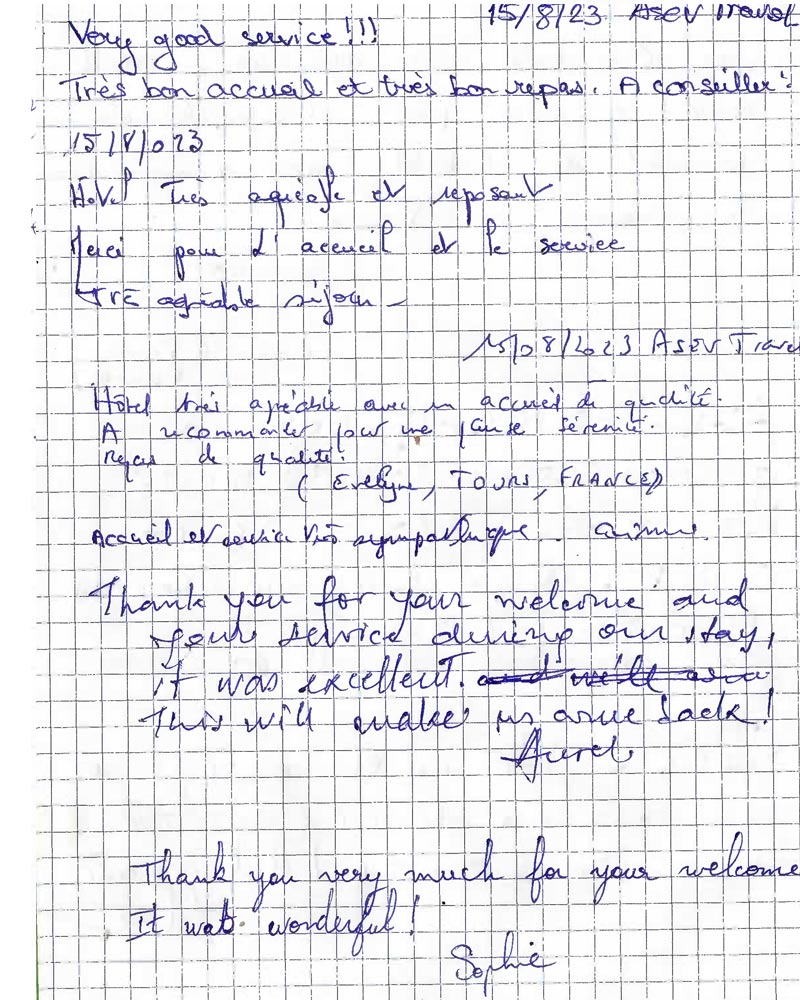 15/8/23 ASEV Travel
Very good service!!!
Très bon accueil et très bon repas. A conseiller!
15/8/023
Hôtel Très agréable et reposant
Merci pour l'accueil et le service
TRE agréable séjour -
15/08/2023 ASEV Travel
Hôtel très agréable avec un accueil de qualité.
A recommander pour une pause sérénité.
Repas de qualité.
(Evelyne, TOURS, FRANCE)
Accueil et service très sympathique.
Thank you for your welcome and
your service during our stay,
it was excellent.
This will make us come back!
Aurel
Thank you very much for your welcome
It was wonderful!
Sophie